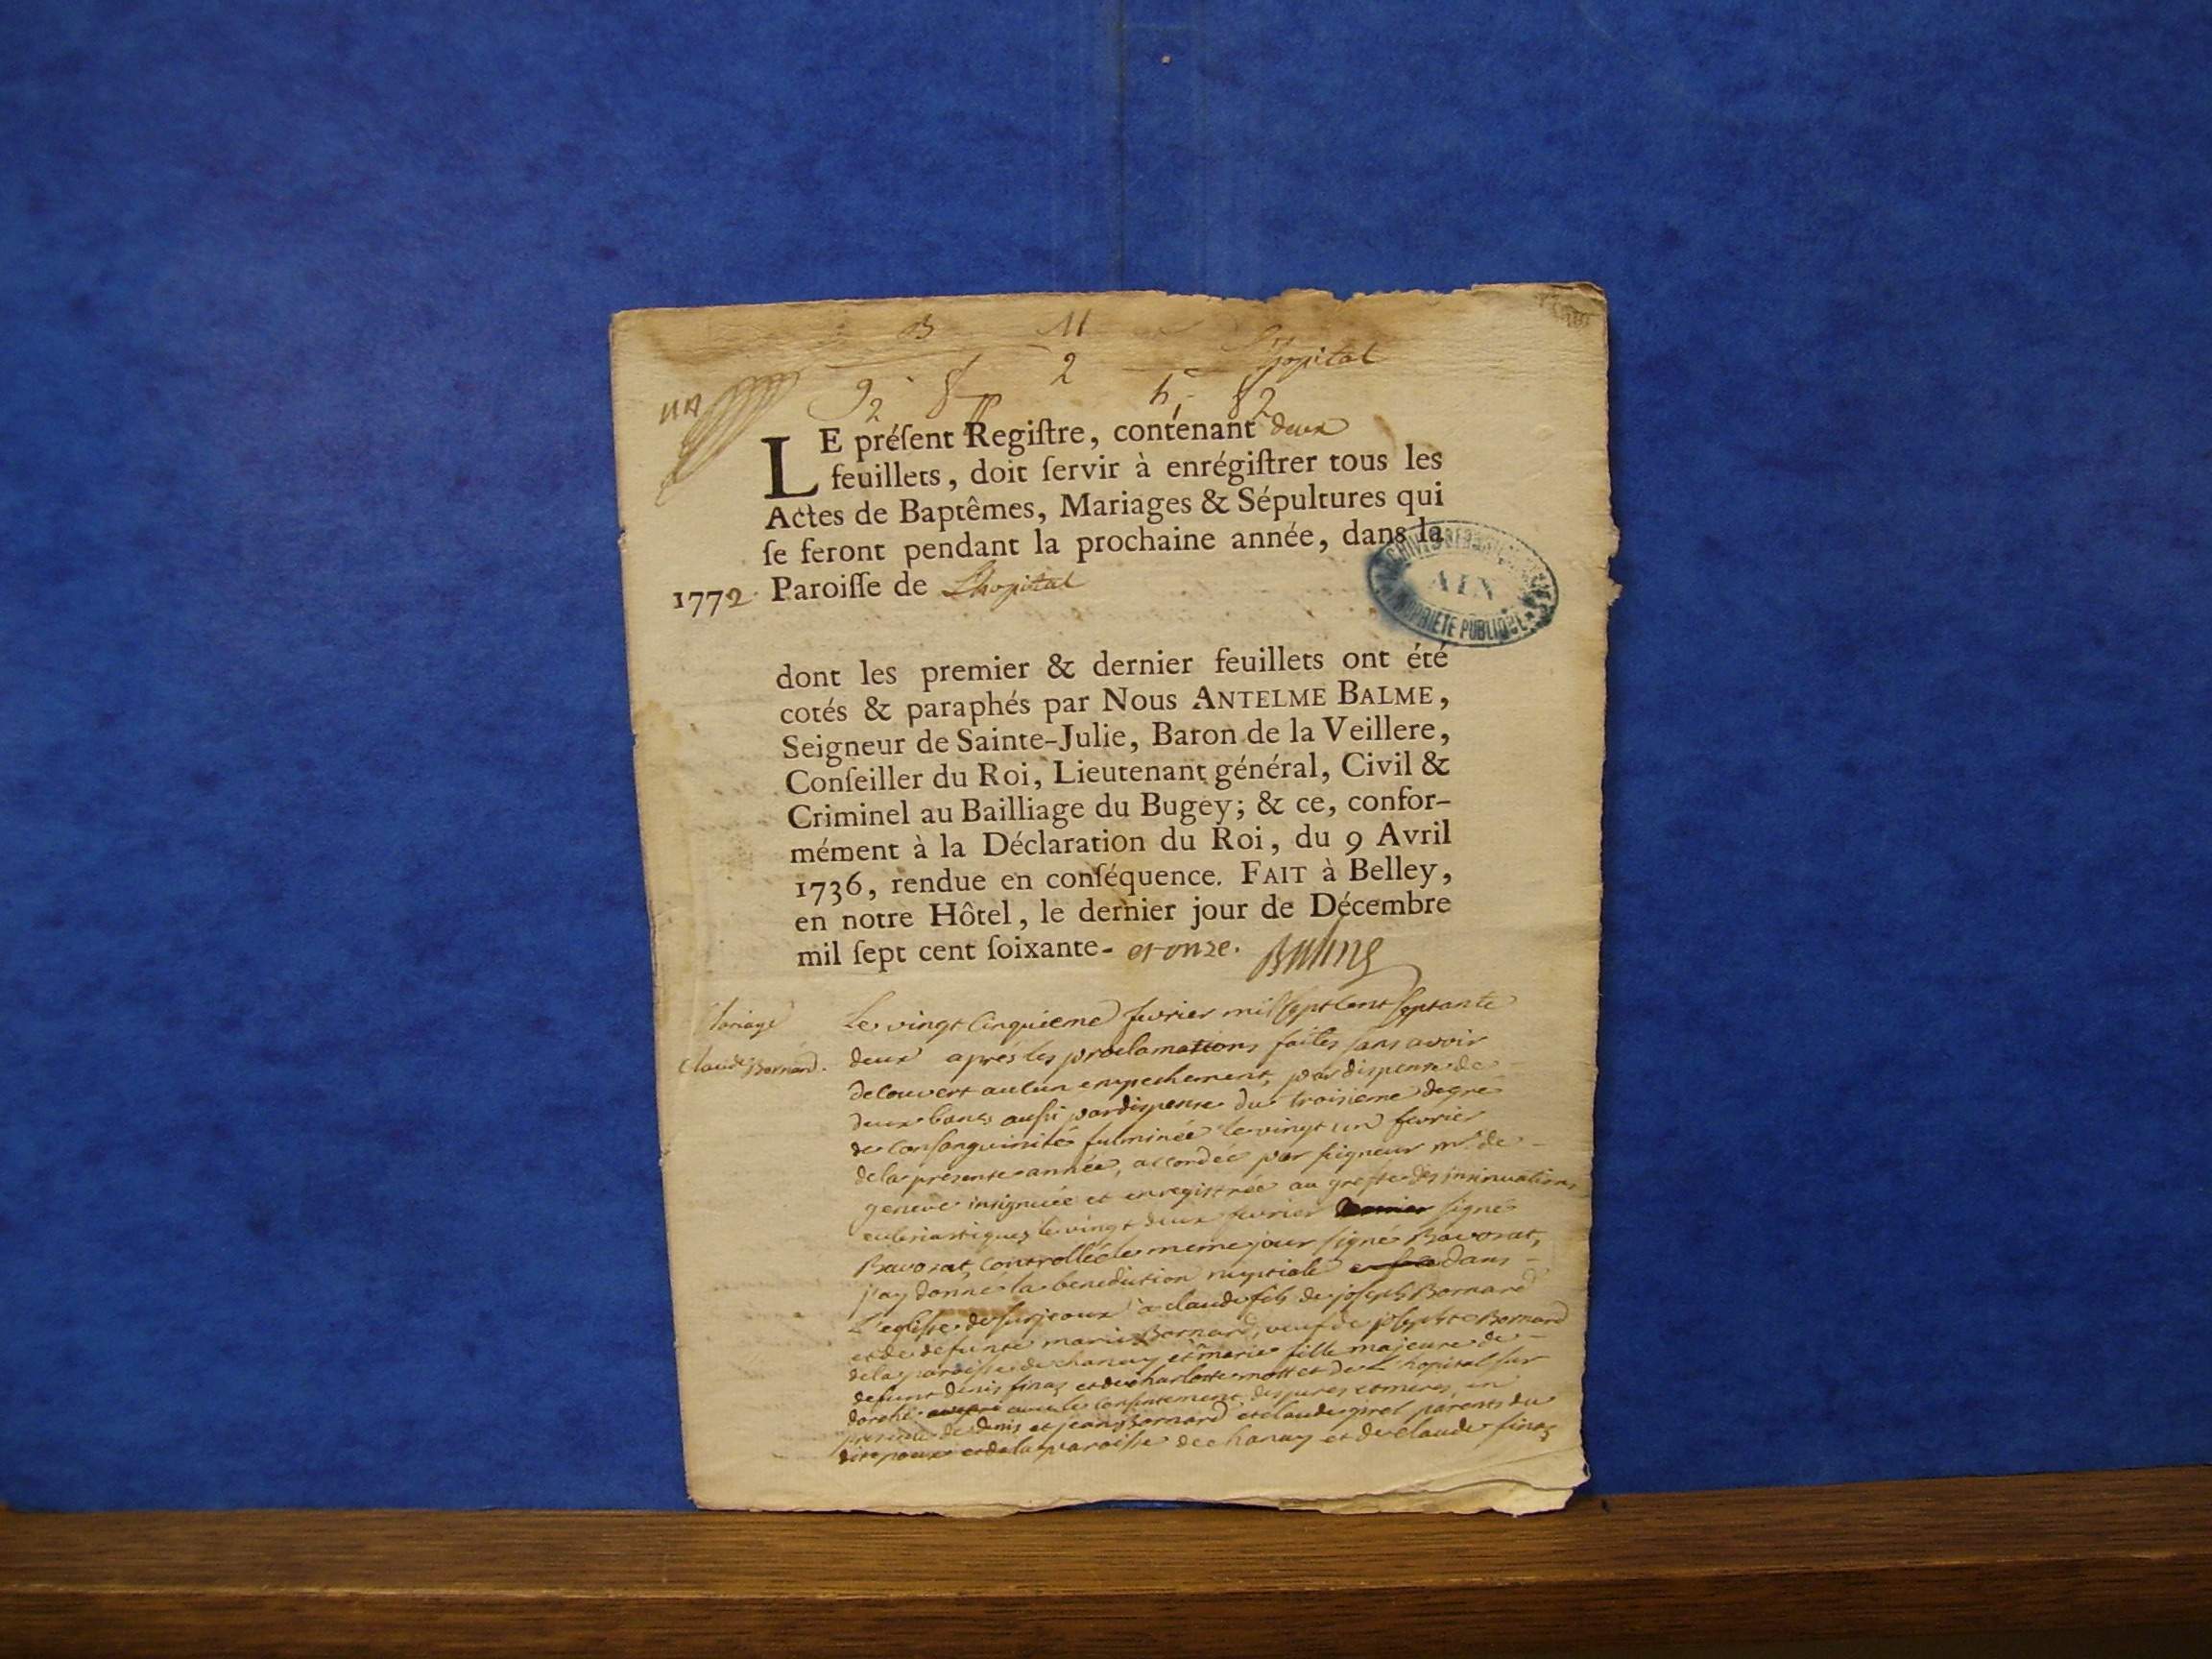 B M
2 L'hopital
92 8 h, 82
LE préſent Regiſtre, contenant deux
feuillets, doit ſervir à enrégiſtrer tous les
Actes de Baptêmes, Mariages & Sépultures qui
ſe feront pendant la prochaine année, dans la
1772 Paroiſſe de L'hopital
AIN
PROPRIETE PUBLIQUE
dont les premier & dernier feuillets ont été
cotés & paraphés par Nous ANTELME BALME,
Seigneur de Sainte-Julie, Baron de la Veillere,
Conſeiller du Roi, Lieutenant général, Civil &
Criminel au Bailliage du Bugey; & ce, confor-
mément à la Déclaration du Roi, du 9 Avril
1736, rendue en conſéquence. FAIT à Belley,
en notre Hôtel, le dernier jour de Décembre
mil ſept cent ſoixante- et onze. Balme
Mariage Le vingt cinquieme fevrier mil sept cent septante
Claude Bornard. deux après les proclamations faites sans avoir
decouvert aucun empechement, par dispense de
deux bancs aussi par dispense du troisieme degre
de consanguinité fulminée le vingt un fevrier
de la presente année, accordée par seigneur mr. de
geneve insignuée et enregistrée au greffe des insinuations
eclesiastiques le vingt deux fevrier signé
Bavozat, controllée le meme jour signé Bavozat,
j'ay donné la benediction nuptiale dans
L'eglise de surjoux a claude fils de joseph Bornard
et de defunte marie Bornard, veuf de josephte Bornard
de la paroisse de chanay et marie fille majeure de
defunt denis finaz et de charlotte mottet de L'hopital sur
dorche avec le consentement des peres et meres, en
presence de denis et jean Bornard et claude parents du
dit epoux et de la paroisse de chanay et de claude finaz